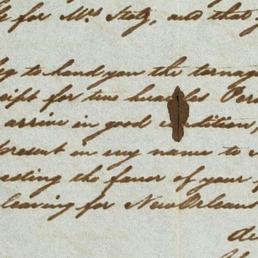 s for Mrs Stolz, and that y
leg to hand you the tonnage
eipt for two hun les Per
arrive in good dition,
present in my name to
eting the favor of your
leaving for NewOrleans